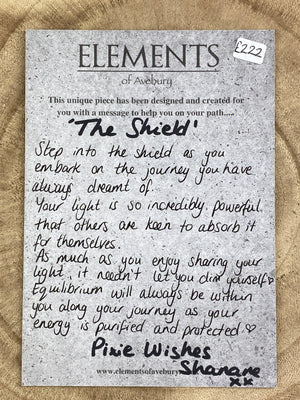 ELEMENTS
£222
of Avebury
This unique piece has been designed and created for
you with a message to help you on your path....
'The Shield'
Step into the shield as you
embark on the journey you have
always dreamt of.
Your light is so incredibly powerful
that others are keen to absorb it
for themselves.
As much as you enjoy sharing your
light, it needn't let you dim yourself♡
Equilibrium will always be within
you along your journey as your
energy is purified and protected♡
Pixie Wishes
www.elementsofavebury
Shanare
xx